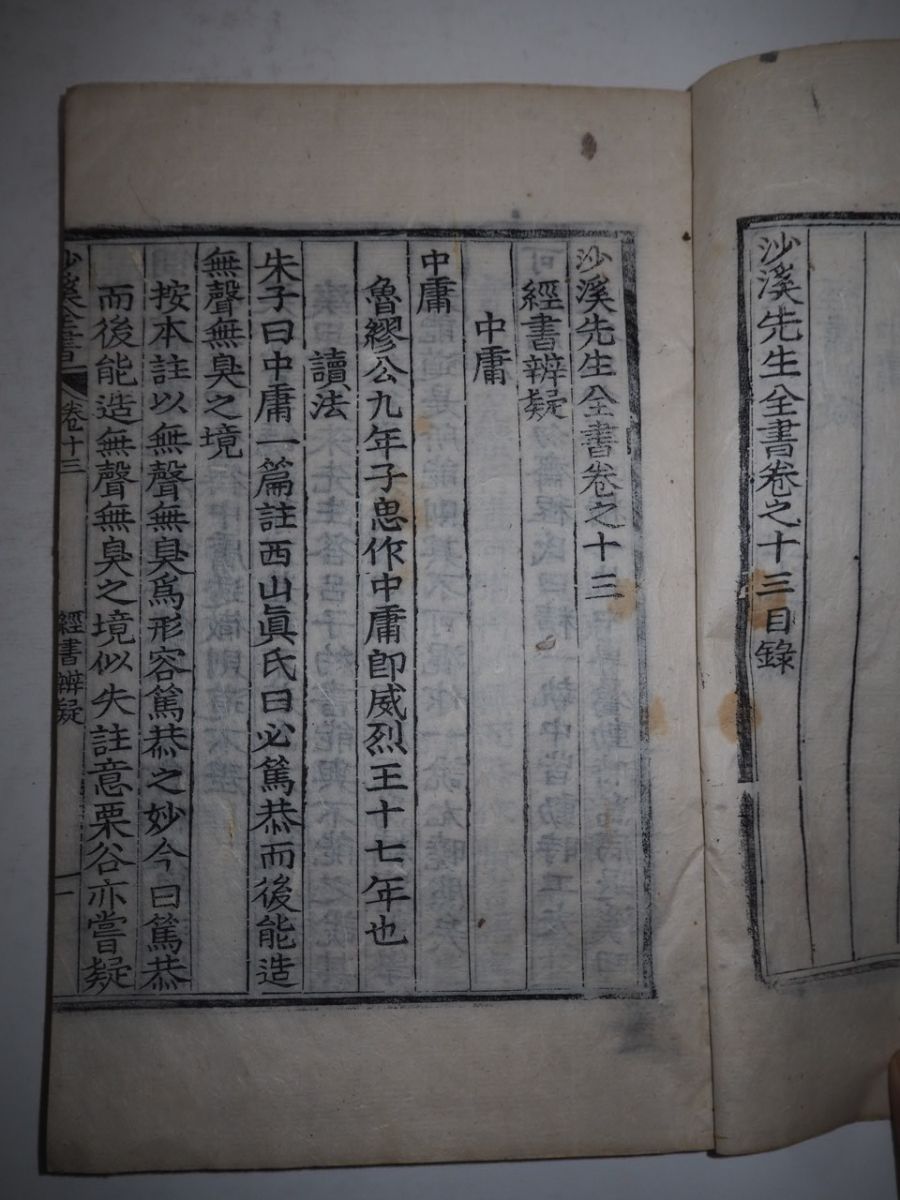 沙溪先生全書卷之十三目錄
沙溪先生全書卷之十三
經書辨疑
中庸
中庸
魯繆公九年子思作中庸卽威烈王十七年也
讀法
朱子曰中庸一篇註西山眞氏曰必篤恭而後能造
無聲無臭之境
按本註以無聲無臭爲形容篤恭之妙今曰篤恭
而後能造無聲無臭之境似失註意栗谷亦嘗疑
沙溪全書
卷十三
經書辨疑
一